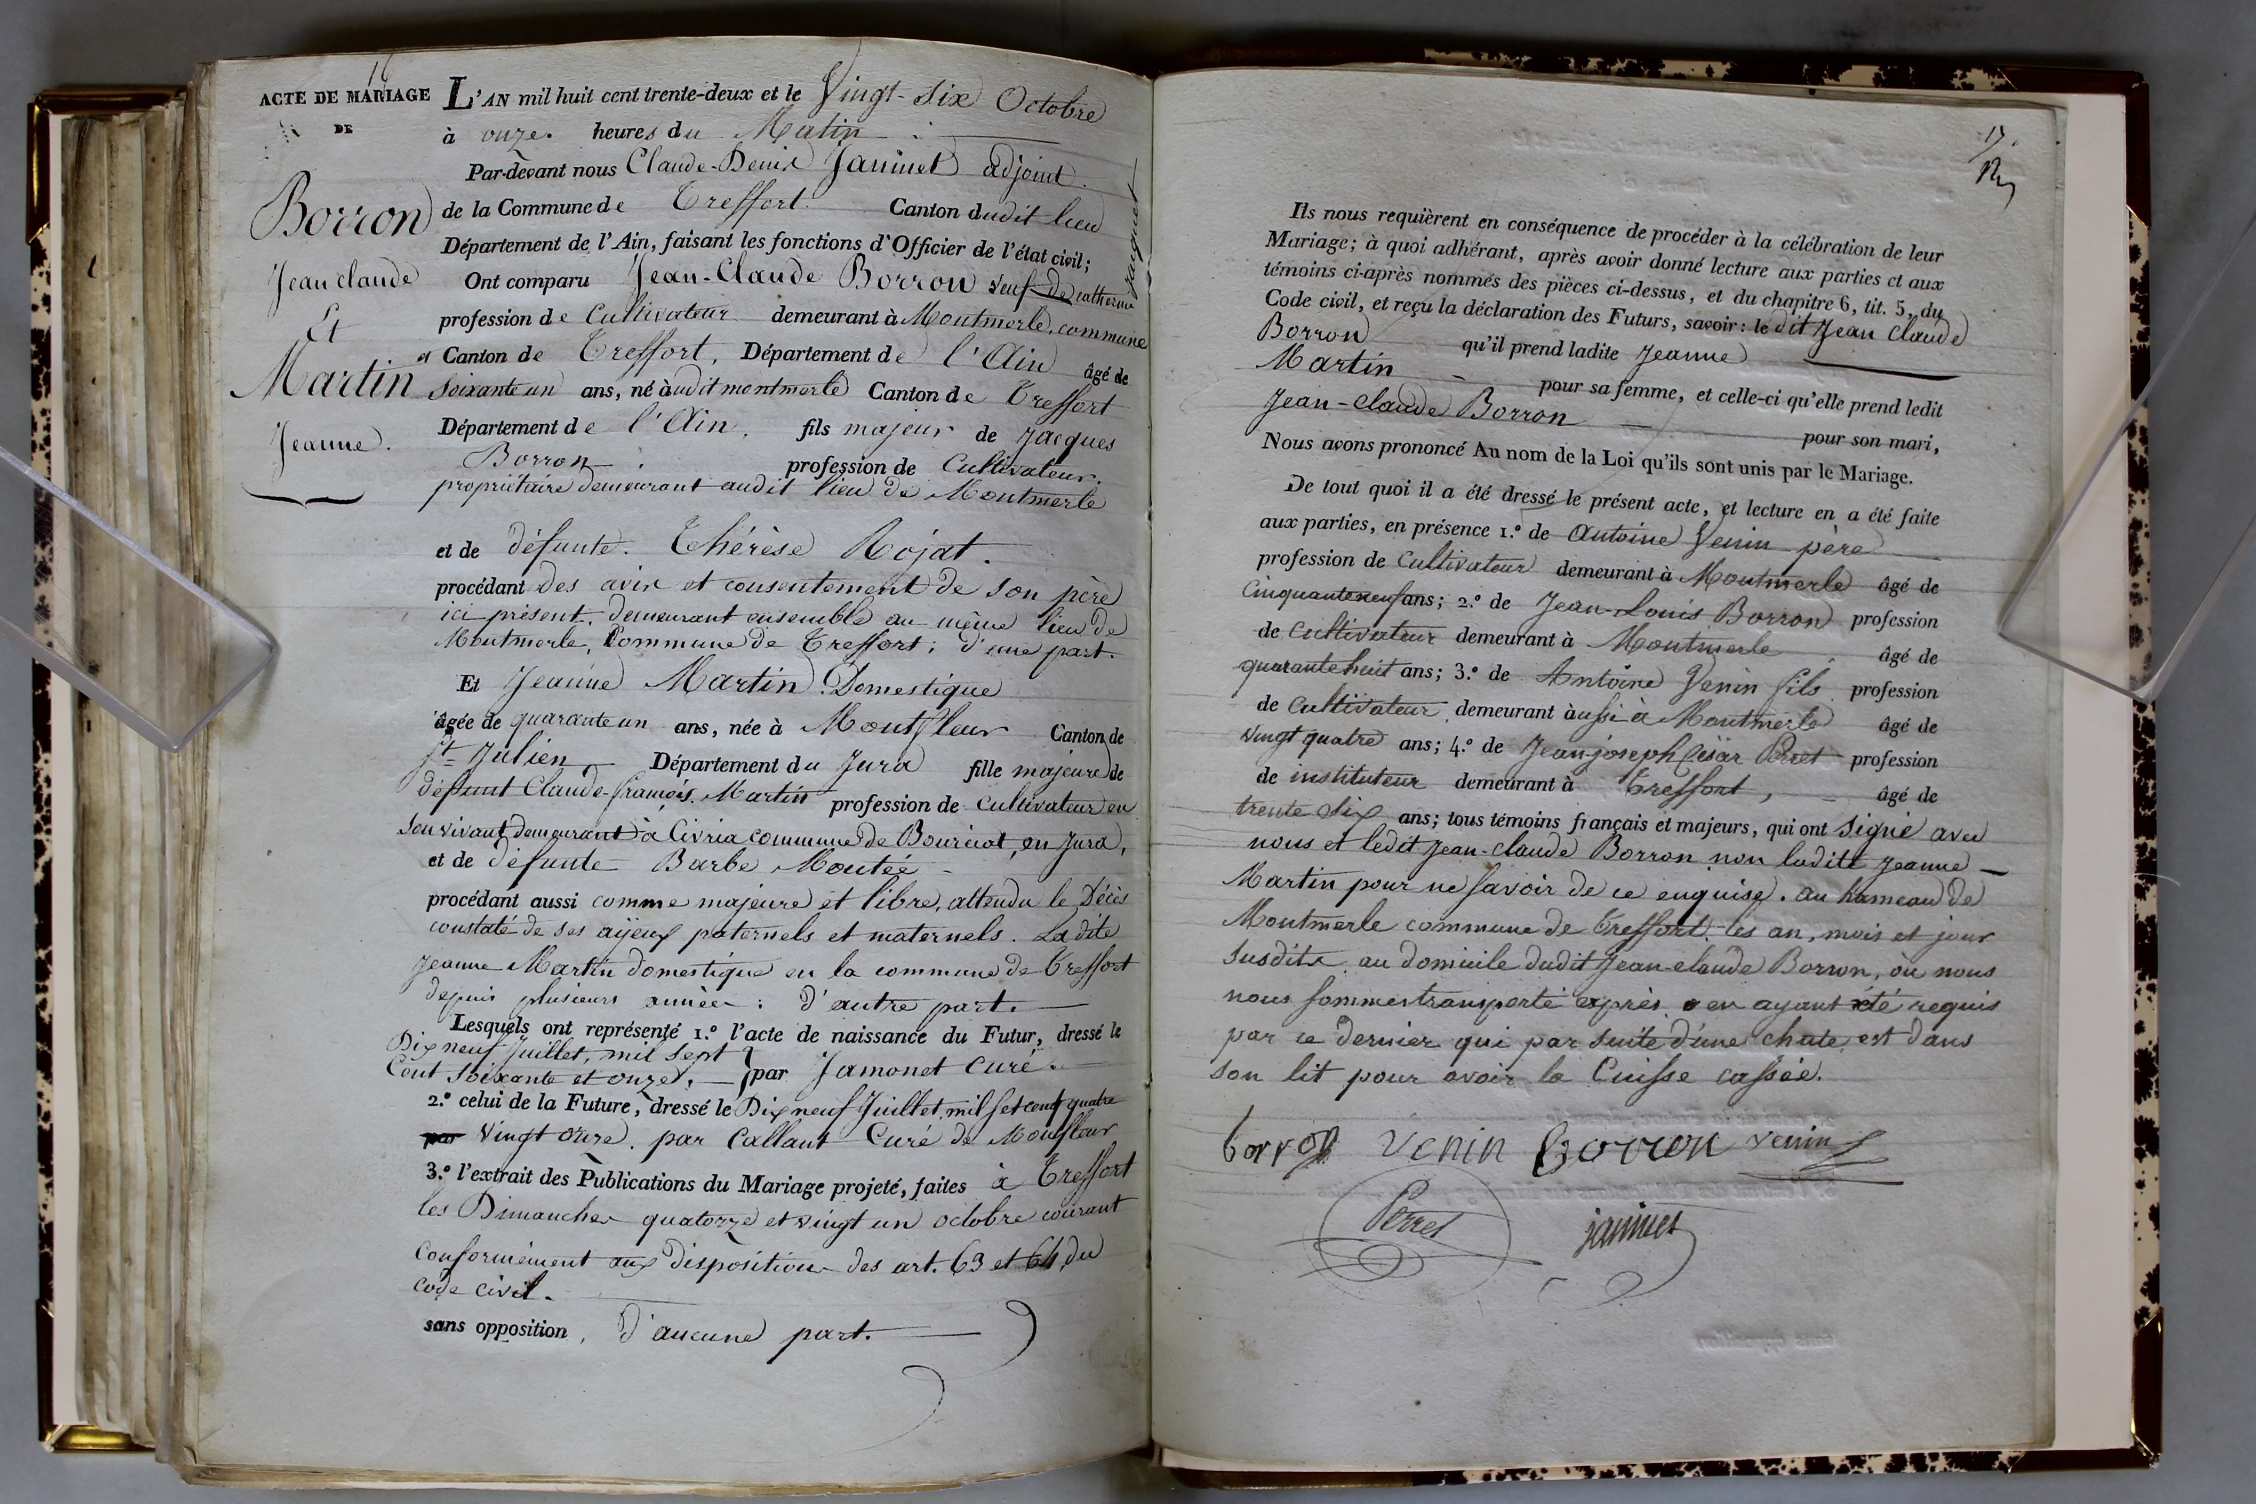 ACTE DE MARIAGE
DE
Borron
Jean claude
Et
Martin
Jeanne.
L'AN mil huit cent trente-deux et le Vingt-Six Octobre
à onze. heures du Matin
Par-devant nous Claude-Denis Janinet adjoint.
de la Commune de Treffort. Canton dudit lieu
Département de l'Ain, faisant les fonctions d'Officier de l'état civil;
Ont comparu Jean-Claude Borron veuf de catherine
profession de Cultivateur demeurant à Montmerle, commune
et Canton de Treffort, Département de l'Ain âgé de
soixante un ans, né audit montmerle Canton de Treffort
Département de l'Ain, fils majeur de Jacques
Borron profession de Cultivateur.
propriétaire demeurant audit lieu de Montmerle
et de défunte. Thérèse Rojat.
procédant des avis et consentement de son père
ici présent. demeurant ensemble au même lieu de
Montmerle, Commune de Treffort; d'une part.
Et Jeanne Martin Domestique
âgée de quarante un ans, née à Montfleur Canton de
St Julien Département du Jura fille majeure de
défunt Claude-françois Martin profession de cultivateur en
son vivant demeurant à Civria commune de Bourciat, en Jura,
et de défunte Barbe Moutée
procédant aussi comme majeure et libre, attendu le Décès
constaté de ses aÿeux paternels et maternels. Ladite
Jeanne Martin domestique en la commune de Treffort
depuis plusieurs années: d'autre part.
Lesquels ont représenté 1.º l'acte de naissance du Futur, dressé le
Dix neuf Juillet, mil sept
Cent soixante et onze, par Jamonet Curé.
2.º celui de la Future, dressé le Dix neuf Juillet mil set cent quatre
par vingt onze. par Callaut Curé de Monfleur
3.º l'extrait des Publications du Mariage projeté, faites à Treffort
les Dimanches quatorze et vingt un octobre courant
Conformément aux dispositions des art. 63 et 64 du
code civil.
sans opposition, d'aucune part.
17.
Ils nous requièrent en conséquence de procéder à la célébration de leur
Mariage; à quoi adhérant, après avoir donné lecture aux parties et aux
témoins ci-après nommés des pièces ci-dessus, et du chapitre 6, tit. 5, du
Code civil, et reçu la déclaration des Futurs, savoir: le dit Jean Claude
Borron qu'il prend ladite Jeanne
Martin pour sa femme, et celle-ci qu'elle prend ledit
Jean-Claude Borron pour son mari,
Nous avons prononcé Au nom de la Loi qu'ils sont unis par le Mariage.
De tout quoi il a été dressé le présent acte, et lecture en a été faite
aux parties, en présence 1.º de Antoine Venin père
profession de Cultivateur demeurant à Montmerle âgé de
Cinquante neuf ans; 2.º de Jean-Louis Borron profession
de Cultivateur demeurant à Montmerle âgé de
quarante huit ans; 3.º de Antoine Venin fils profession
de Cultivateur demeurant aussi à Montmerle âgé de
vingt quatre ans; 4.º de Jean-joseph César Perret profession
de instituteur demeurant à Treffort, âgé de
trente six ans; tous témoins français et majeurs, qui ont signé avec
nous et ledit Jean-Claude Borron non ladite Jeanne
Martin pour ne savoir de ce enquise. au hameau de
Montmerle commune de Treffort, les an, mois et jour
susdits au domicile dudit Jean-claude Borron, où nous
nous sommes transporté exprès en ayant été requis
par ce dernier qui par suite d'une chute est dans
son lit pour avoir la Cuisse cassée.
borron Venin Borron venin
Perret janinet